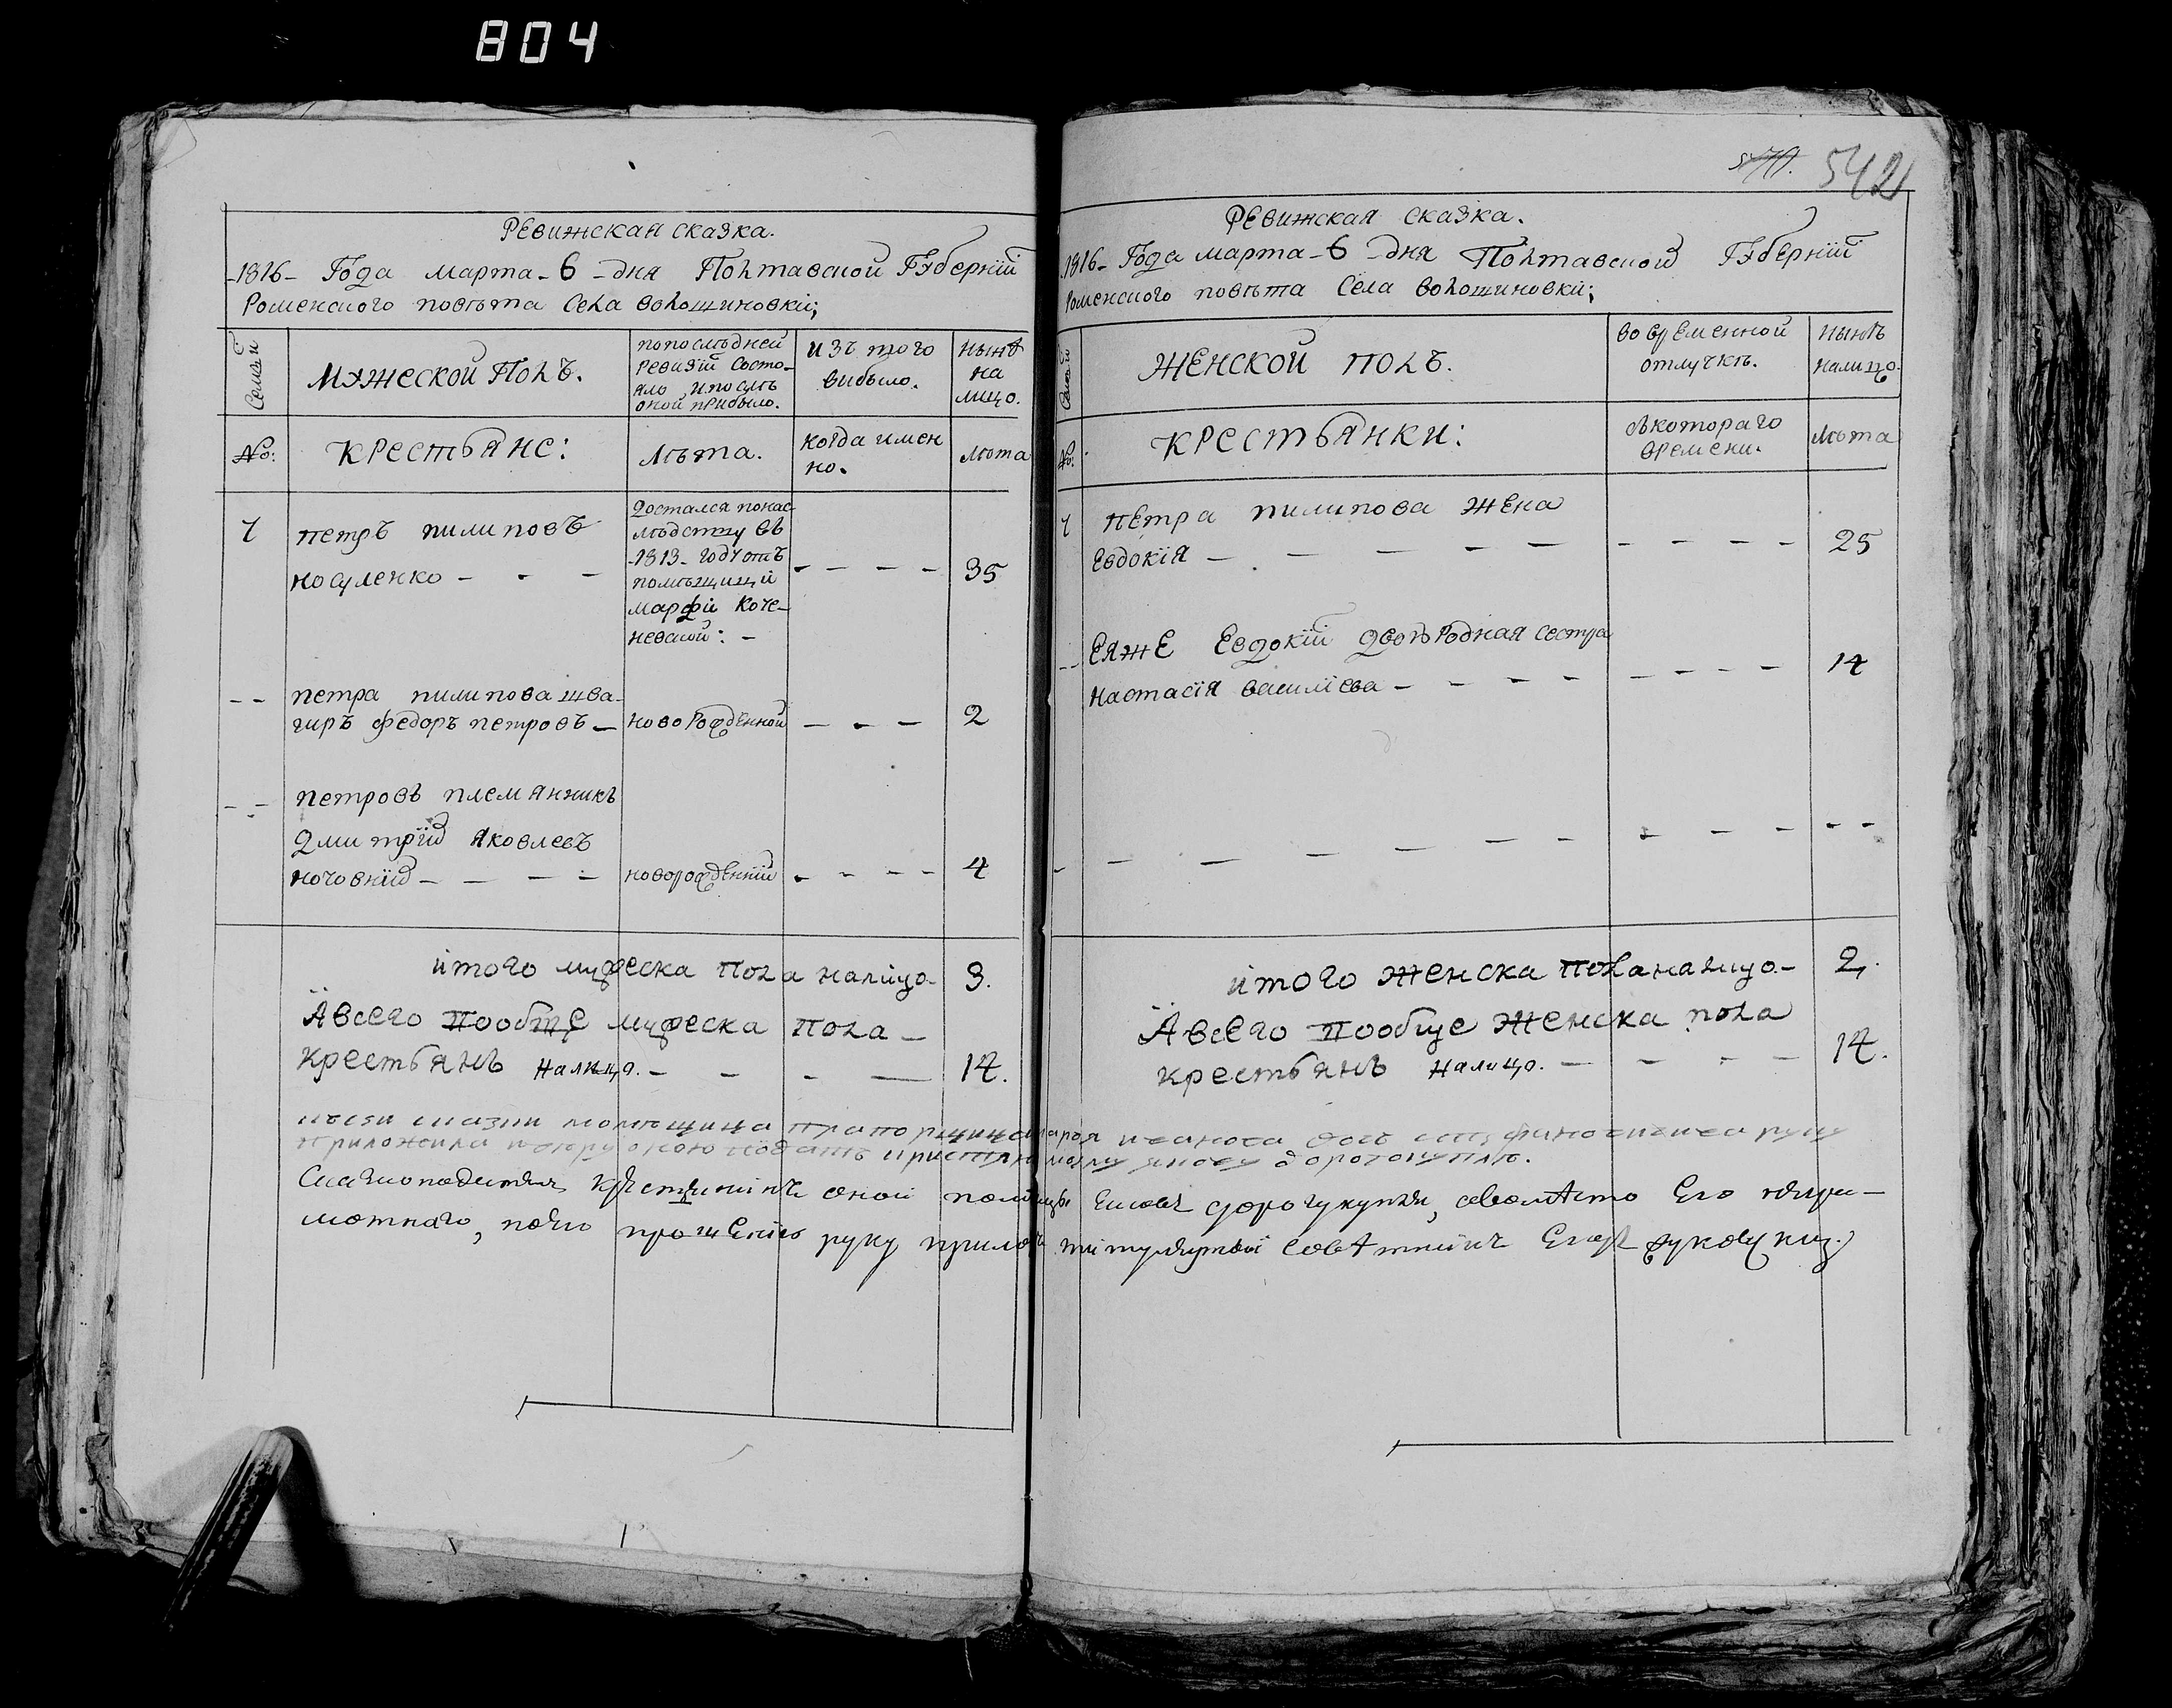 804
542
Ревижская сказка.
-1816- Года марта - 6 - дня Полтавской Губернїй
Роменского повѣта Села волошиновкй;
Семьи
Мужеской Полъ.
попослѣдней
ревизїй состо-
яло ипослѣ
оной прибыло.
изъ того
вибыло.
нынѣ
на
лицо.
No:
Крестьяне:
лѣта.
когда имен
но.
лѣта
Достался понас
лѣдству въ
-1813- году отъ
помѣщицй
марфи Коче-
невской: -
петръ пилиповъ
носуленко - - -
- - - -
35
- -
петра пилипова шва-
гиръ федоръ петровъ -
новорожденной
- - -
2
- -
петровъ племянникъ
Дмитрїй Яковлевъ
кочовнїй - - - -
новорожденнїй
- - - -
4
итого мужеска пола налицо -
3.
А всего пообще мужеска пола -
крестьянъ налицо. - - - -
14.
Ревижская сказка.
1816- Года марта - 6 - дня Полтавской Губернїй
Роменского повѣта Села волошиновкй;
Семьи
Женской полъ.
во временной
отлучкѣ.
нынѣ
налицо.
No:
Крестьянки:
съкотораго
времени.
лѣта
петра пилипова жена
Евдокїя - - - - -
- - - -
25
- -
Еяже Евдокїй двоюродная сестра
настасїя василїева - - - -
- - - -
14
- - - - - - - - - - - -
итого женска пола налицо -
2.
А всего пообще женска пола
крестьянъ налицо. - - - -
14.
късей сказки помѣщица прапорщица дарья иванова дочь руку
приложила
мотнаго, его прошенїю руку приложилъ титулярный совѣтникъ